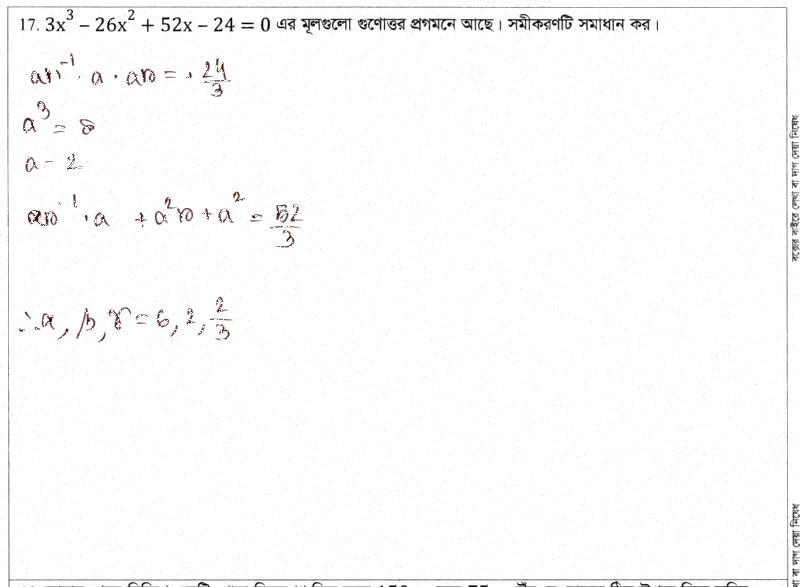 17. 3x³ − 26x² + 52x − 24 = 0 এর মূলগুলো গুণোত্তর প্রগমনে আছে। সমীকরণটি সমাধান কর।
ar⁻¹ · a · ar = · 24/3
a³ = 8
a = 2
ar⁻¹ · a + a²r + a² = 52/3
∴ α, β, γ = 6, 2, 2/3
বক্সের বাইরে লেখা বা দাগ দেয়া নিষেধ
বা দাগ দেয়া নিষেধ